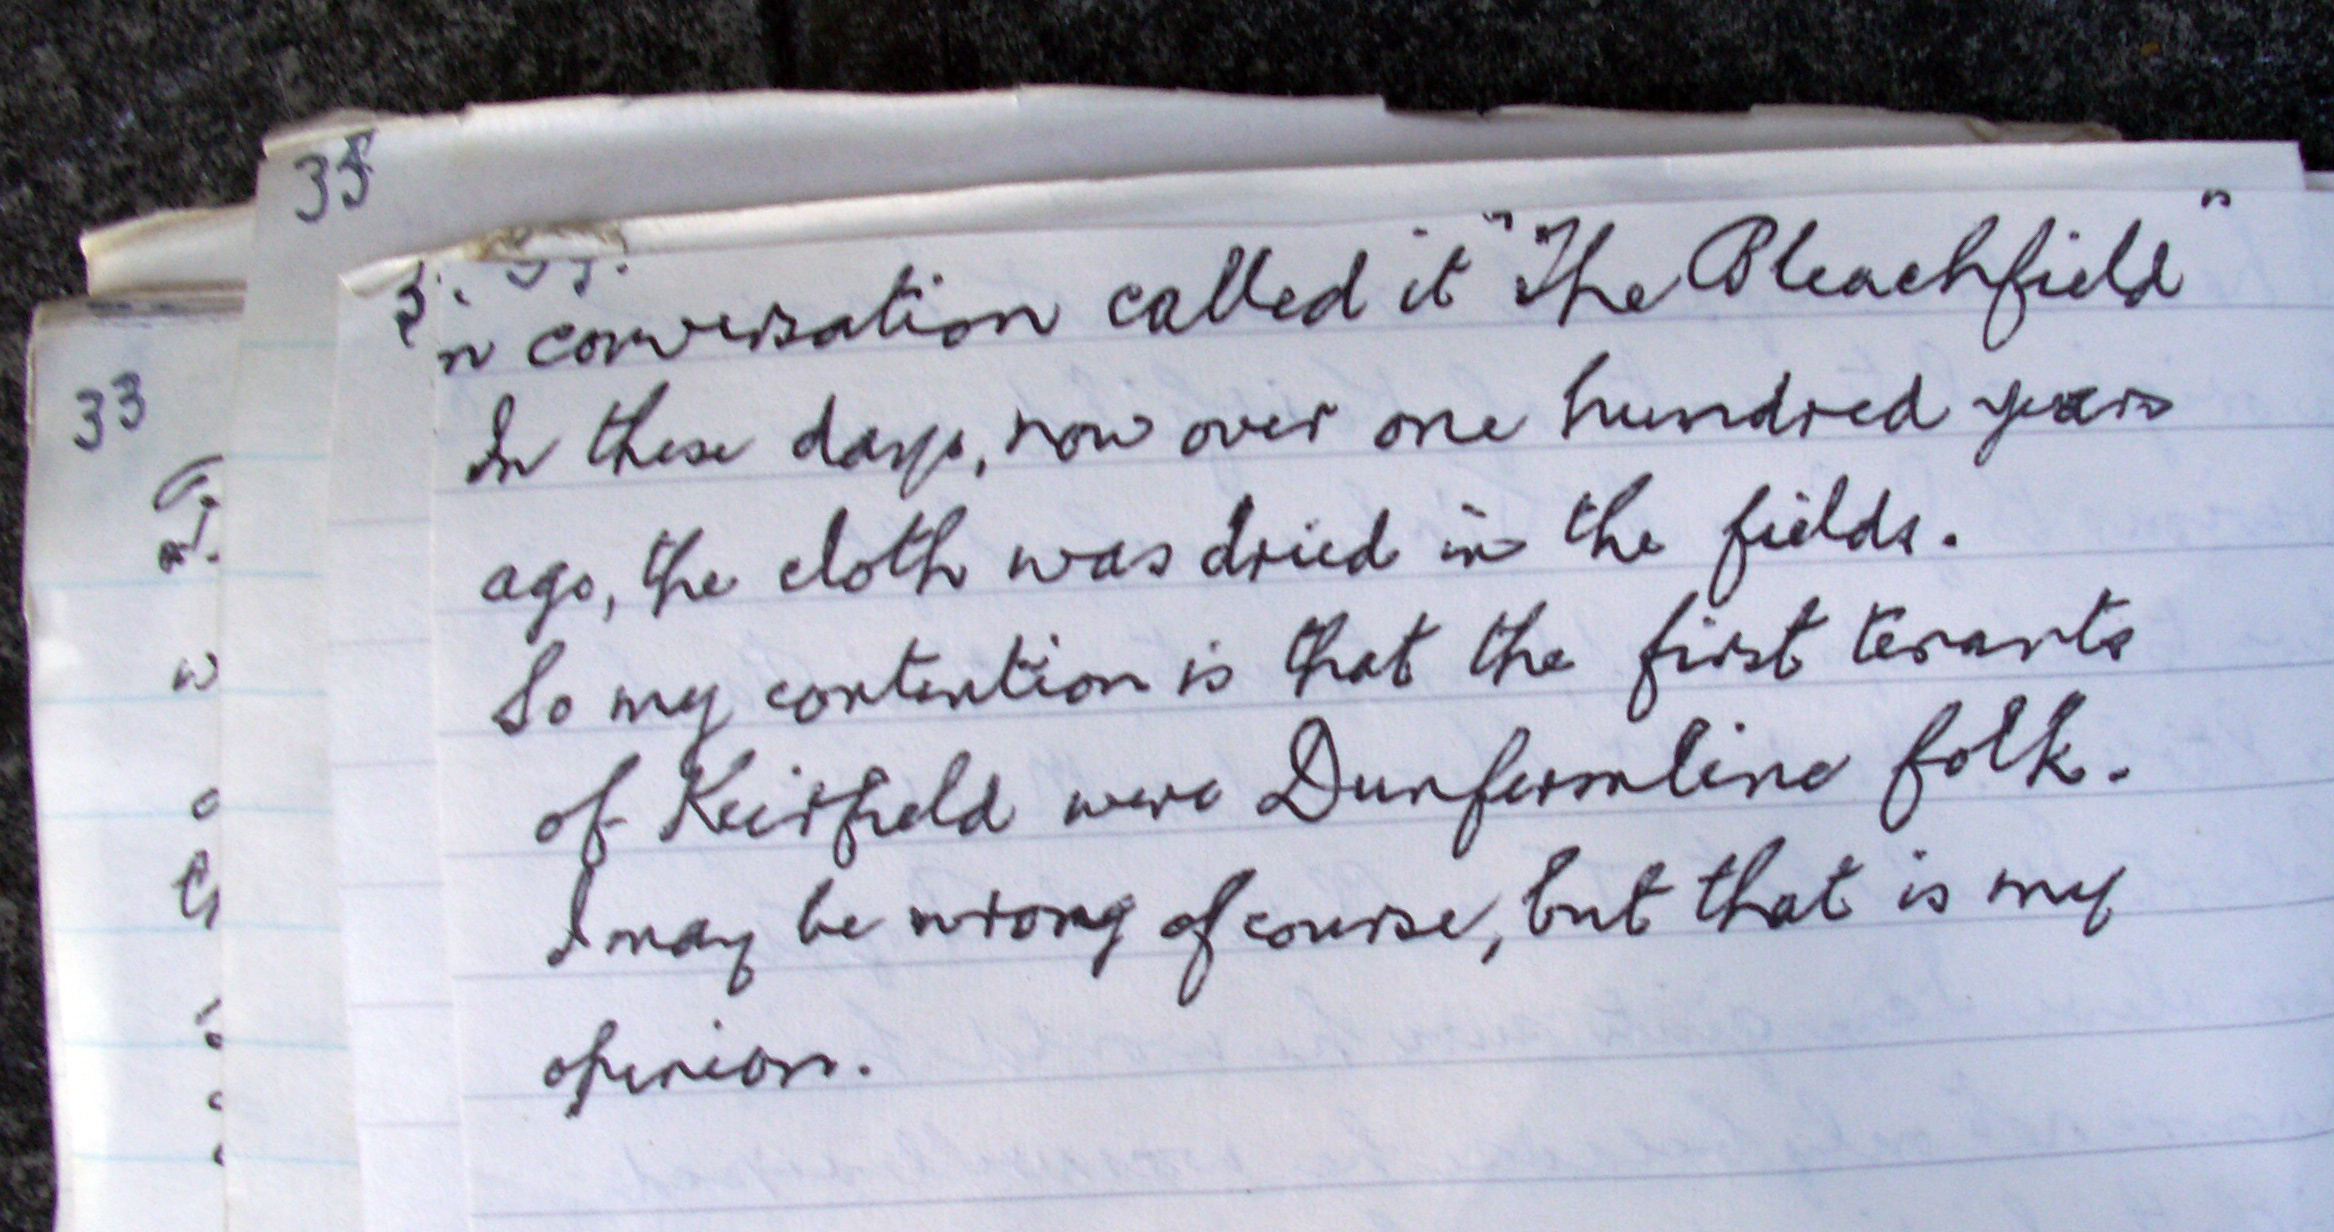 35
33
n conversation called it "The Bleachfield"
In these days, now over one hundred years
ago, the cloth was dried in the fields.
So my contention is that the first tenants
of Keirfield were Dunfermline folk.
I may be wrong of course, but that is my
opinion.